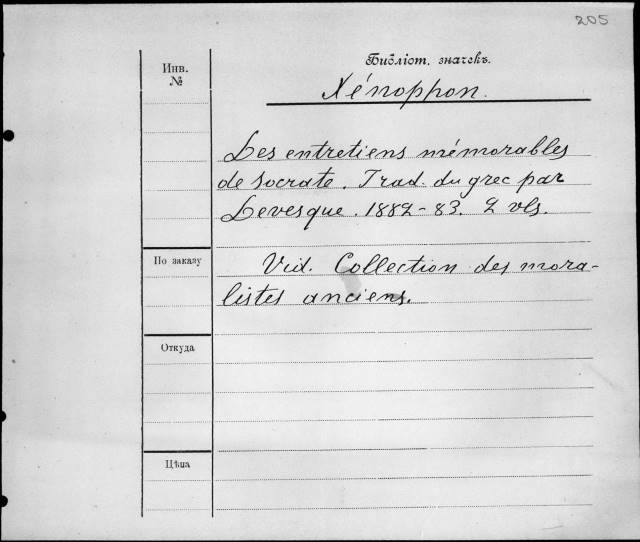 205
Инв.
№
Библіот. значекъ.
Xénophon.
Les entretiens mémorables
de Socrate. Trad. du grec par
Levesque. 1882-83. 2 vls.
По заказу
Vid. Collection des mora-
listes anciens.
Откуда
Цѣна